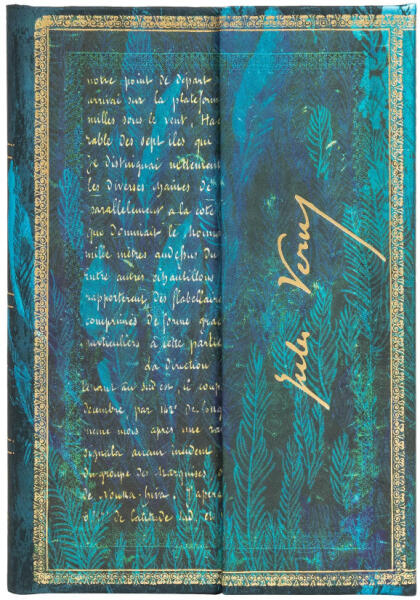 notre point de départ
arrivai sur la plateforme
milles sous le vent, Hao
rable des sept iles que
je distinguai nettement
les diverses chaines de
parallèlement à la côte
que dominait le
mille mètres audessus du
entre autres échantillons
rapportèrent des flabellaires
comprimées de forme grac
particulières à cette partie
La direction
tenait au sud est, il coupa
décembre par 142° de long
même mois après une
signala aucun incident
du groupe des Marquises,
de Nouka-hiva. J'aperç
de latitude sud, et
Jules Verne